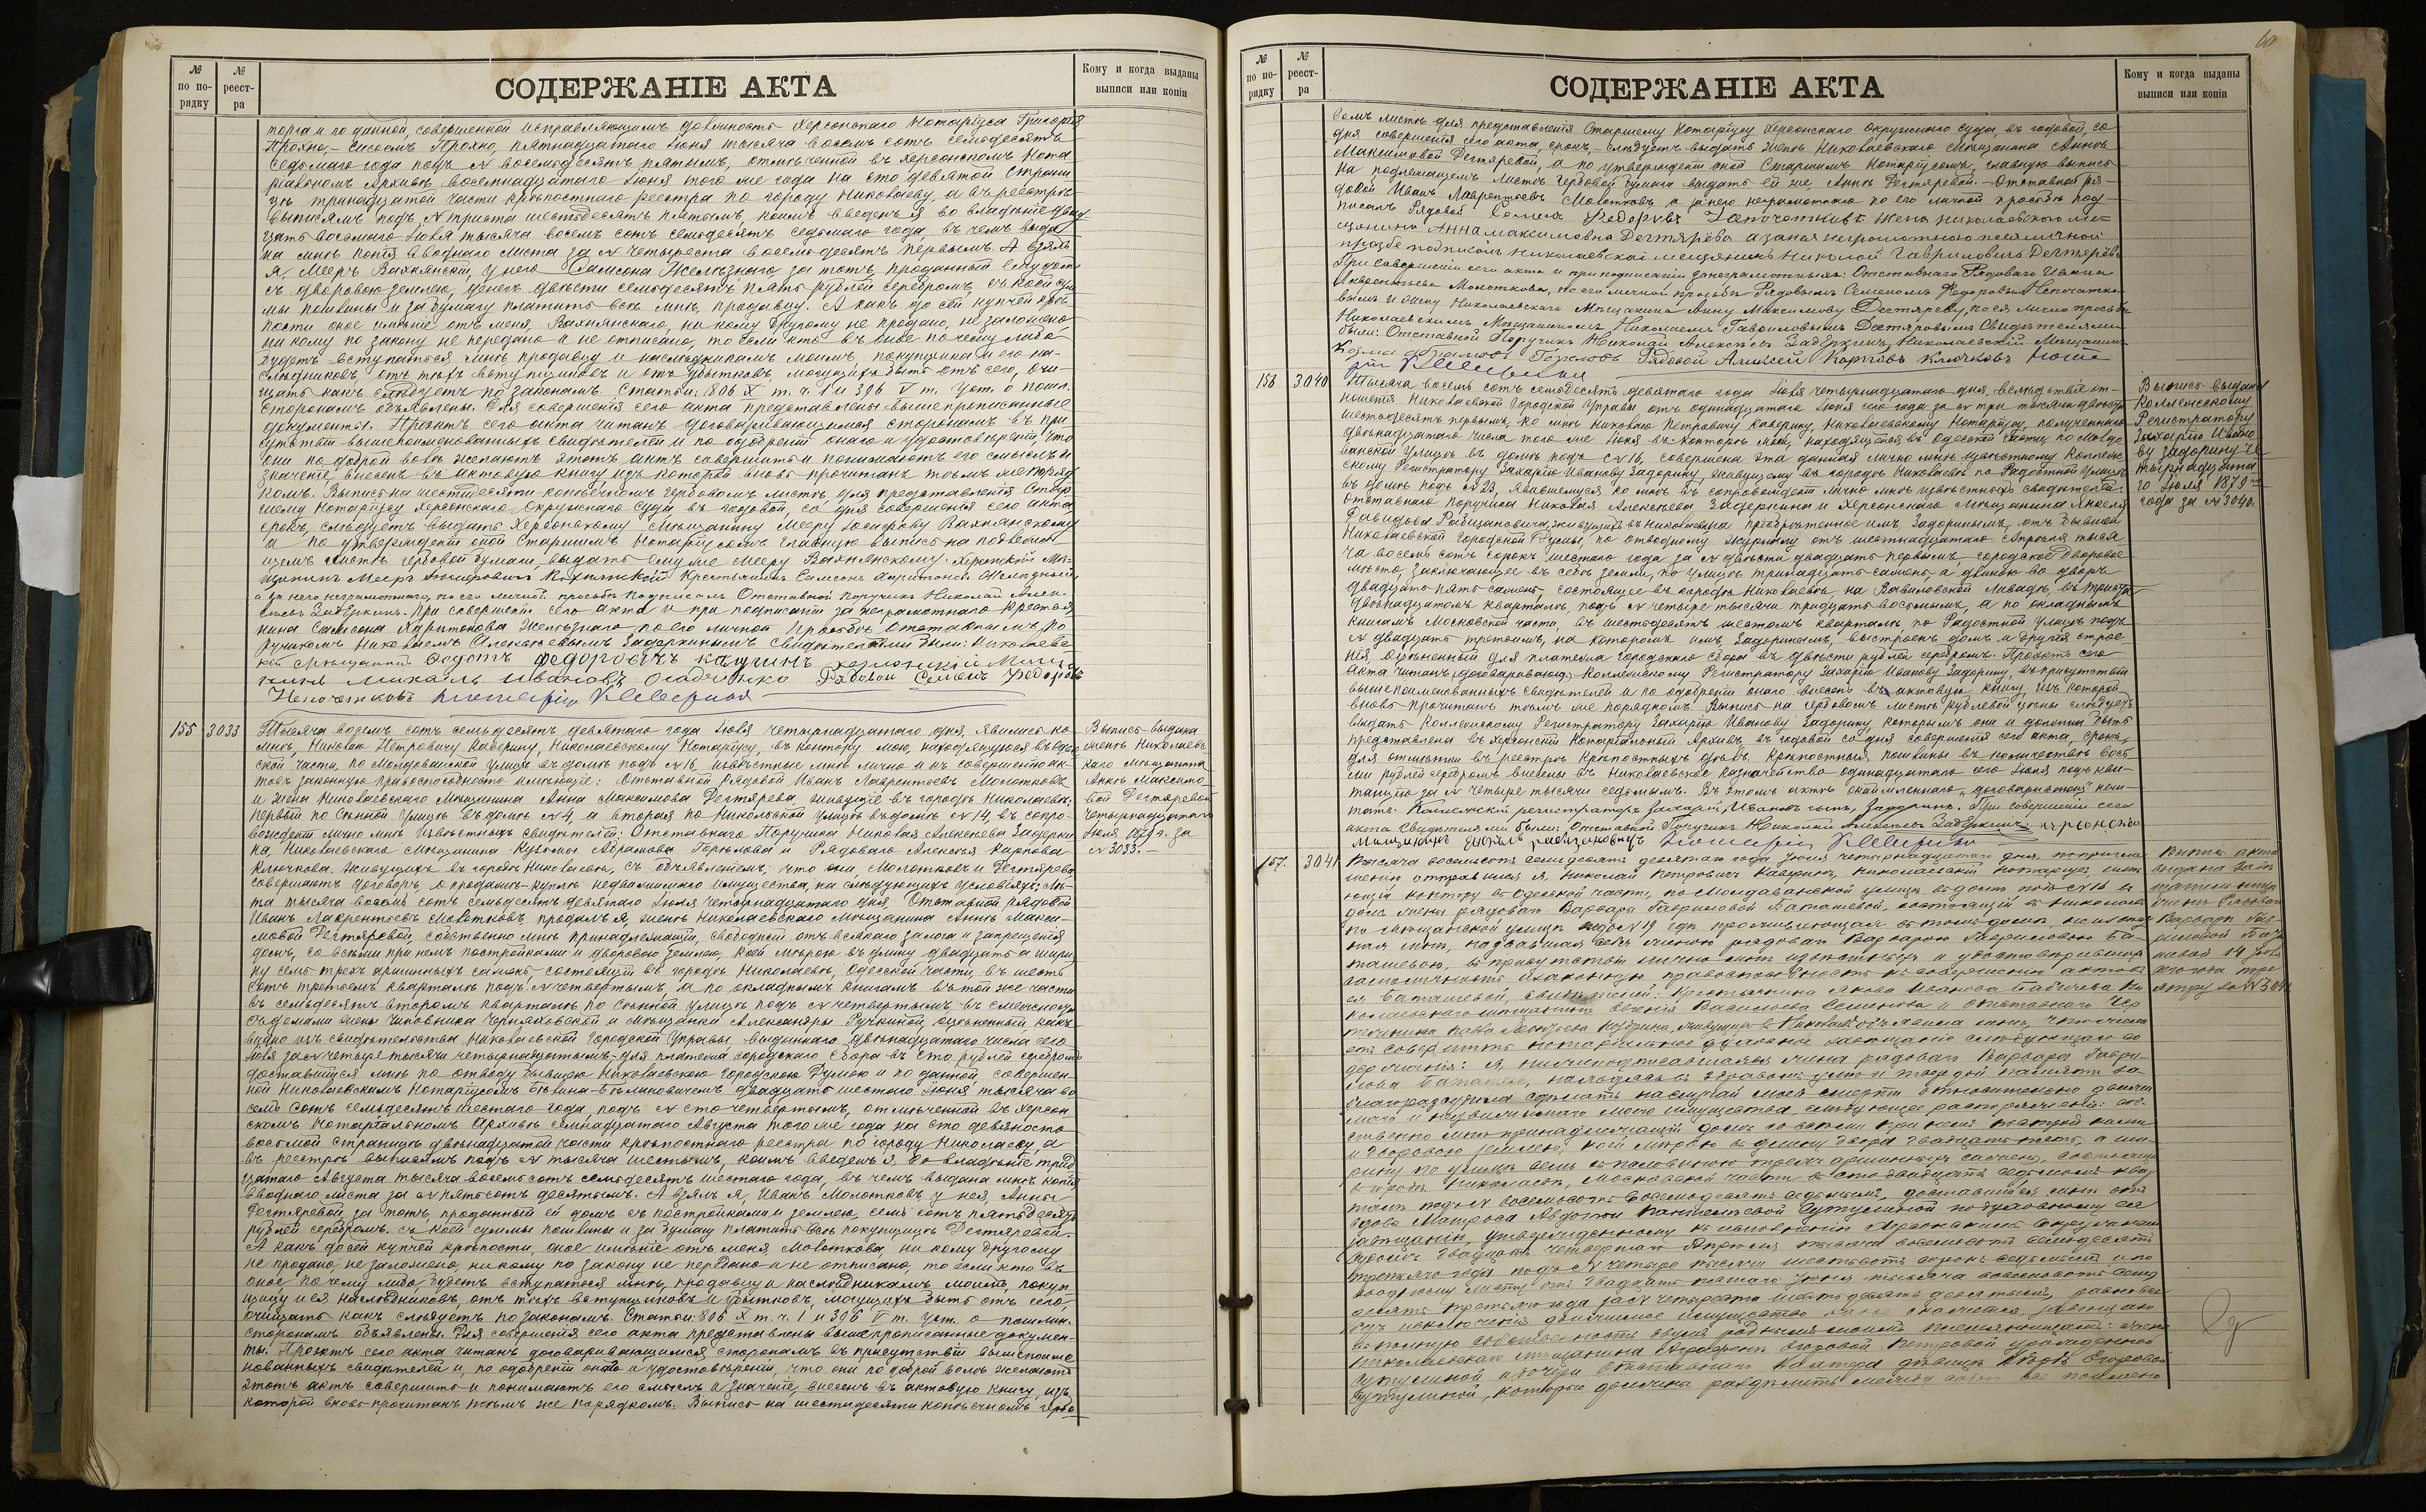 № по по-рядку
№ реест-ра
СОДЕРЖАНІЕ АКТА
Кому и когда выданы выписи или копіи
торга и по данной, совершенной исправляющимъ должность Херсонскаго Нотаріуса Григорія
Прохно, пятнадцатаго Іюня тысяча восемь сотъ семьдесятъ
седьмаго года подъ № восемьдесятъ пятымъ, отмѣченной въ Херсонскомъ Нота
ріальномъ Архивѣ восемнадцатаго Іюня того же года на сто девятой страни
цѣ тринадцатой части крѣпостнаго реестра по городу Николаеву, а въ реестрѣ
выписямъ подъ № триста шестьдесятъ пятымъ, коимъ введенъ я во владѣніе двад
цать восьмаго Іюня тысяча восемь сотъ семьдесятъ седьмаго года, въ чемъ выда
на мнѣ копія вводнаго листа за № четыреста восемьдесятъ первымъ. А взялъ
я, Мееръ Вахнянскій, у него Самсона Желѣзного, за тотъ, проданный ему домъ
съ дворовою землею, денегъ двѣсти семьдесятъ пять рублей серебромъ, съ коей сум
мы пошлины и за бумагу платить всѣ мнѣ, продавцу. А какъ до сей купчей крѣ
пости оное имѣніе отъ меня, Вахнянскаго, ни кому другому не продано, не заложено
ни кому по закону не передано и не отписано, то если кто въ оное по чему либо
будетъ вступаться мнѣ продавцу и наслѣдникамъ моимъ, покупщика и его на-
слѣдниковъ, отъ тѣхъ вступщиковъ и отъ убытковъ, могущихъ быть отъ сего, очи-
щать какъ слѣдуетъ по законамъ. Статьи: 806 X т. ч. 1 и 396 V т. Уст. о пошл.
сторонамъ объявлены. Для совершенія сего акта представлены вышепрописанные
документы. Проэктъ сего акта читанъ договаривающимся сторонамъ въ при
сутствіи вышепоименованныхъ свидѣтелей и по одобреніи онаго и удостовѣреніи, что
они по доброй волѣ желаютъ этотъ актъ совершить и понимаютъ его смыслъ и
значеніе, внесенъ въ актовую книгу изъ которой вновь прочитанъ тѣмъ же поряд
комъ. Выпись на шестидесяти копѣечномъ гербовомъ листѣ для представленія Стар
шему Нотаріусу Херсонскаго Окружнаго Суда въ годовой, со дня совершенія сего акта
срокъ, слѣдуетъ выдать Херсонскому Мѣщанину Мееру Іосифову Вахнянскому
а по утвержденіи оной Старшимъ Нотаріусомъ главную выпись на подлежа
щемъ листѣ гербовой бумаги, выдать ему же Мееру Вахнянскому. Херсонскій Мѣ-
щанинъ Мееръ Вахнянскій Крестьянинъ Самсонъ Харитоновъ Желѣзный
а за него неграмотнаго, по его личной просьбѣ подписалъ Отставной Поручикъ Николай Алек-
сѣевъ Задеркинъ. При совершеніи сего акта и при подписаніи за неграмотнаго Крестья
нина Самсона Харитонова Желѣзного по его личной просьбѣ Отставнымъ По
ручикомъ Николаемъ Алексѣевымъ Задеркинымъ Свидѣтелями были: Николаевс
кій Мѣщанинъ Федотъ Федоровичъ Кашинъ Херсонскій Мѣща
нинъ Михаилъ Ивановъ Рядовой Семенъ Федоровъ
Непочатковъ Нотаріусъ Каверинъ
155
3033
Тысяча восемь сотъ семьдесятъ девятаго года Іюля четырнадцатаго дня, явились ко
мнѣ, Николаю Петровичу Каверину, Николаевскому Нотаріусу, въ контору мою, находящуюся въ Одес
ской части, по Молдованской улицѣ въ домѣ подъ № 16, извѣстные мнѣ лично и къ совершенію ак-
товъ законную правоспособность имѣющіе: Отставной Рядовой Иванъ Лаврентьевъ Молотковъ
и жена Николаевскаго Мѣщанина Анна Максимова Дегтярева, живущіе въ городѣ Николаевѣ:
первый по Сѣнной улицѣ въ домѣ № 4, а вторая по Никольской улицѣ въ домѣ № 14, въ сопро-
вожденіи лично мнѣ извѣстныхъ свидѣтелей: Отставнаго Поручика Николая Алексѣева Задерки
на, Николаевскаго Мѣщанина Кузьмы Абрамова Горюлова и Рядоваго Алексѣя Карпова
Клочкова, живущихъ въ городѣ Николаевѣ, съ объявленіемъ, что они, Молотковъ и Дегтярева
совершаютъ договоръ о продажѣ-куплѣ недвижимаго имущества, на слѣдующихъ условіяхъ: Лѣ-
та тысяча восемь сотъ семьдесятъ девятаго Іюля четырнадцатаго дня, Отставной рядовой
Иванъ Лаврентьевъ Молотковъ, продалъ я, женѣ Николаевскаго Мѣщанина Аннѣ Макси-
мовой Дегтяревой, собственно мнѣ принадлежащій, свободный отъ всякаго залога и запрещенія
домъ, со всѣми при немъ постройками и дворовою землею, коей мѣрою въ длину двадцать а шири
ну семь трехъ аршинныхъ саженъ, состоящій въ городѣ Николаевѣ, Одесской части, въ шесть
сотъ третьемъ кварталѣ подъ № четвертымъ, а по окладнымъ книгамъ въ той же части
въ семьдесятъ второмъ кварталѣ по Сѣнной улицѣ подъ № четвертымъ въ смежности
съ домами жены чиновника Черняховской и мѣщанки Александры Ручкиной, оцѣненный какъ
видно изъ свидѣтельства Николаевской Городской Управы выданнаго двѣнадцатаго числа сего
Іюля за № четыре тысячи четырнадцатымъ, для платежа городскаго сбора въ сто рублей серебромъ
доставшійся мнѣ по отводу бывшею Николаевскою Городскою Думою и по данной, совершен-
ной Николаевскимъ Нотаріусомъ двадцать шестого Іюня тысяча во
семь сотъ семьдесятъ шестаго года, подъ № сто четвертымъ, отмѣченной въ Херсон
скомъ Нотаріальномъ Архивѣ семнадцатаго Августа того же года на сто девяносто
восьмой страницѣ двѣнадцатой части крѣпостнаго реестра по городу Николаеву, а
въ реестрѣ выписямъ подъ № тысяча шестымъ, коимъ введенъ я во владѣніе трид
цатаго Августа тысяча восемь сотъ семьдесятъ шестаго года, въ чемъ выдана мнѣ копія
вводнаго листа за № пятьсотъ десятымъ. А взялъ я, Иванъ Молотковъ у нея, Анны
Дегтяревой, за тотъ, проданный ей домъ съ постройками и землею, семь сотъ пятьдесятъ
рублей серебромъ, съ коей суммы пошлины и за бумагу платить всѣ покупщицѣ Дегтяревой.
А какъ до сей купчей крѣпости, оное имѣніе отъ меня, Молоткова, ни кому другому
не продано, не заложено, ни кому по закону не передано и не отписано, то если кто въ
оное по чему либо будетъ вступаться мнѣ, продавцу и наслѣдникамъ моимъ, покуп
щицу и ея наслѣдниковъ, отъ тѣхъ вступщиковъ и убытковъ, могущихъ быть отъ сего,
очищать какъ слѣдуетъ по законамъ. Статьи: 806 X т. ч. 1 и 396 V т. уст. о пошлин.
сторонамъ объявлены. Для совершенія сего акта представлены вышепрописанные докумен-
ты. Проэктъ сего акта читанъ договаривающимся сторонамъ въ присутствіи вышепоиме
нованныхъ свидѣтелей и, по одобреніи онаго и удостовѣреніи, что они по доброй волѣ желаютъ
этотъ актъ совершить и понимаютъ его смыслъ и значеніе, внесенъ въ актовую книгу, изъ
которой вновь прочитанъ тѣмъ же порядкомъ. Выпись на шестидесяти копѣечномъ гербо
Выпись выдана
женѣ Николаевс
каго Мѣщанина
Аннѣ Максимо
вой Дегтяревой
четырнадцатаго
Іюля 1879 г. за
№ 3033.
60
№ по по-рядку
№ реест-ра
СОДЕРЖАНІЕ АКТА
Кому и когда выданы выписи или копіи
вомъ листѣ для представленія Старшему Нотаріусу Херсонскаго Окружнаго Суда, въ годовой, со
дня совершенія сего акта, срокъ, слѣдуетъ выдать женѣ Николаевскаго Мѣщанина Аннѣ
Максимовой Дегтяревой, а по утвержденіи оной Старшимъ Нотаріусомъ, главную выпись
на подлежащемъ листѣ гербовой бумаги выдать ей же, Аннѣ Дегтяревой. Отставной ря-
довой Иванъ Лаврентьевъ Молотковъ, а за него неграмотнаго по его личной просьбѣ под-
писалъ Рядовой Семенъ Федоровъ Жена николаевскаго мѣ-
щанина Анна Максимовна Дегтярева а за нея неграмотною по ея личной
прозбе подписалъ Николаевскій мещанинъ Николай Гавриловичъ Дегтярёвъ
При совершеніи сего акта и при подписаніи за неграмотныхъ: Отставнаго Рядоваго Ивана
Лаврентьева Молоткова, по его личной просьбѣ Рядовымъ Семеномъ Федоровымъ Непочатко
вымъ и жену Николаевскаго Мѣщанина Анну Максимову Дегтяреву, по ея лично просьбѣ
Николаевскимъ Мѣщаниномъ Николаемъ Гавриловымъ Дегтяревымъ Свидѣтелями
были: Отставной Поручикъ Николай Алексѣевъ Задеркинъ, Николаевскій Мѣщанинъ
Рядовой Алексей Карповъ Клочковъ Нота
ріусъ Каверинъ
156
3040
Тысяча восемь сотъ семьдесятъ девятаго года Іюля четырнадцатаго дня, вслѣдствіе от-
ношенія Николаевской Городской Управы отъ одинадцатаго Іюня сего года за № три тысячи двѣсти
шестьдесятъ первымъ, ко мнѣ Николаю Петровичу Каверину, Николаевскому Нотаріусу, полученнаго
двѣнадцатаго числа того же Іюня въ конторѣ моей, находящейся въ Одесской части по Молдо
ванской улицѣ въ домѣ подъ № 16, совершена эта данная лично мнѣ извѣстному Коллежс
скому Регистратору Захарію Иванову Задорину, живущему въ городѣ Николаевѣ по Радостной улицѣ
въ домѣ подъ № 23, явившемуся ко мнѣ въ сопровожденіи лично мнѣ извѣстныхъ свидѣтелей:
Отставнаго Поручика Николая Алексѣева Задеркина и Херсонскаго Мѣщанина Янкеля
Давидова Рабиновича, живущихъ въ Николаевѣ на пріобрѣтенное имъ, Задоринымъ, отъ бывшей
Николаевской Городской Думы, по отводному журналу отъ шестнадцатаго Апрѣля тыся
ча восемь сотъ сорокъ шестаго года за № двѣсти двадцать первымъ, городское дворовое
мѣсто, заключающее въ себѣ земли, по улицѣ тринадцать саженъ, а длиною во дворъ
двадцать пять саженъ, состоящее въ городѣ Николаевѣ, на Вавиловской ливадѣ, въ триста
двѣнадцатомъ кварталѣ, подъ № четыре тысячи тридцать восьмымъ, а по окладнымъ
книгамъ Московской части, въ шестьдесятъ шестомъ кварталѣ по Радостной улицѣ подъ
№ двадцать третьимъ, на которомъ имъ, Задоринымъ, выстроенъ домъ и другія строе
нія, оцѣненный для платежа городскаго сбора въ двѣсти рублей серебромъ. Проэктъ сего
акта читанъ Коллежскому Регистратору Захарію Иванову Задорину, въ присутствіи
вышепоименованныхъ свидѣтелей и по одобреніи онаго внесенъ въ актовую книгу, изъ которой
вновь прочитанъ тѣмъ же порядкомъ. Выпись на гербовомъ листѣ рублевой цѣны слѣдуетъ
выдать Коллежскому Регистратору Захарію Иванову Задорину которымъ она и должна быть
представлена въ Херсонскій Нотаріальный Архивъ въ годовой со дня совершенія сего акта, срокъ,
для отмѣтки въ реестрѣ крѣпостныхъ дѣлъ. Крѣпостныя пошлины въ количествѣ вось
ми рублей серебромъ внесены въ Николаевское Казначейство одинадцатаго сего Іюля подъ кви-
танціею за № четыре тысячи седьмымъ.
Коллежскій регистраторъ Захарій Ивановъ сынъ, Задоринъ. При совершеніи сего
акта Свидѣтелями были: Отставной Поручикъ Николай Алексѣевъ Задеркинъ, Херсонскій
Мѣщанинъ Янкель Рабиновичъ Нотаріусъ Каверинъ
Выпись выдана
Коллежскому
Регистратору
Захарію Ивано
ву Задорину че
тырнадцата
го Іюля 1879 го
года за № 3040.
157.
3041
Тысяча восемьсотъ семьдесятъ девятаго года Іюля четырнадцатаго дня, по пригла
шенію отправился я, Николай Петровичъ Каверинъ, Николаевскій Нотаріусъ, имѣ
ющій контору въ Одесской части, по Молдаванской улицѣ въ домѣ подъ № 16 въ
домъ жены рядоваго Варвары Гавриловой Баташевой, состоящій въ Николаевѣ
по Мѣщанской улицѣ подъ № 19 гдѣ проживающая въ томъ домѣ, неизвѣст
ная мнѣ, назвавшая себя женою рядоваго Варварою Гавриловою Ба-
ташевою, въ присутствіи лично мнѣ извѣстныхъ и удостовѣрившихъ
самоличность и законную правоспособность къ совершенію актовъ
ея Баташевой, свидѣтелей: Крестьянина Якова Иванова Бабичева Ни
колаевскаго мѣщанина Василіева Семенова и Отставнаго
живущихъ въ Николаевѣ объявила мнѣ, что жела
етъ совершить нотаріальное духовное завѣщаніе слѣдующаго со
держанія: Я, нижеподписавшаяся жена рядоваго Варвара Гаври-
лова Баташева, находясь въ здравомъ умѣ и твердой памяти за
благоразсудила сдѣлать на случай моей смерти относительно движи
маго и недвижимаго моего имущества, слѣдующее распоряженіе: соб-
ственно мнѣ принадлежащій домъ со всѣми при немъ постройками
и дворовою землею, коей мѣрою въ длину двора двадцать пять, а ши-
рину по улицѣ семь съ половиною трехъ аршинныхъ саженъ, состоящій
въ городѣ Николаевѣ, Московской части въ сто двадцать седьмомъ квар
талѣ подъ № восемьсотъ восемьдесятъ седьмымъ, доставшійся мнѣ отъ
вдовы Матроса Авдотьи Пантелѣевой Сутулиной по духовному ея
завѣщанію, утвержденному къ исполненію Херсонскимъ Окружнымъ
Судомъ двадцать четвертаго Апрѣля тысяча восемьсотъ семьдесятъ
третьяго года подъ № четыре тысячи шестьсотъ сорокъ седьмымъ и по
вводному листу отъ двадцать пятаго Іюня тысяча восемьсотъ семь
десятъ третьяго года за № четыреста шестьдесятъ девятымъ, равно все
безъ исключенія движимое имущество какое окажется, завѣщаю
въ полную собственность двумъ роднымъ моимъ племянницамъ: женѣ
Николаевскаго мѣщанина Аграфенѣ Егоровой Петровой урожденной
Сутулиной и дочери Отставнаго дѣвицѣ Егоровой
Сутулиной, которые должны раздѣлить между собою все поименов
Выпись акта
выдана Завѣ
щательницѣ
женѣ Рядоваго
Варварѣ Гав-
риловой Бата
шевой 14 Іюля
сего года по ре
естру за № 3041.